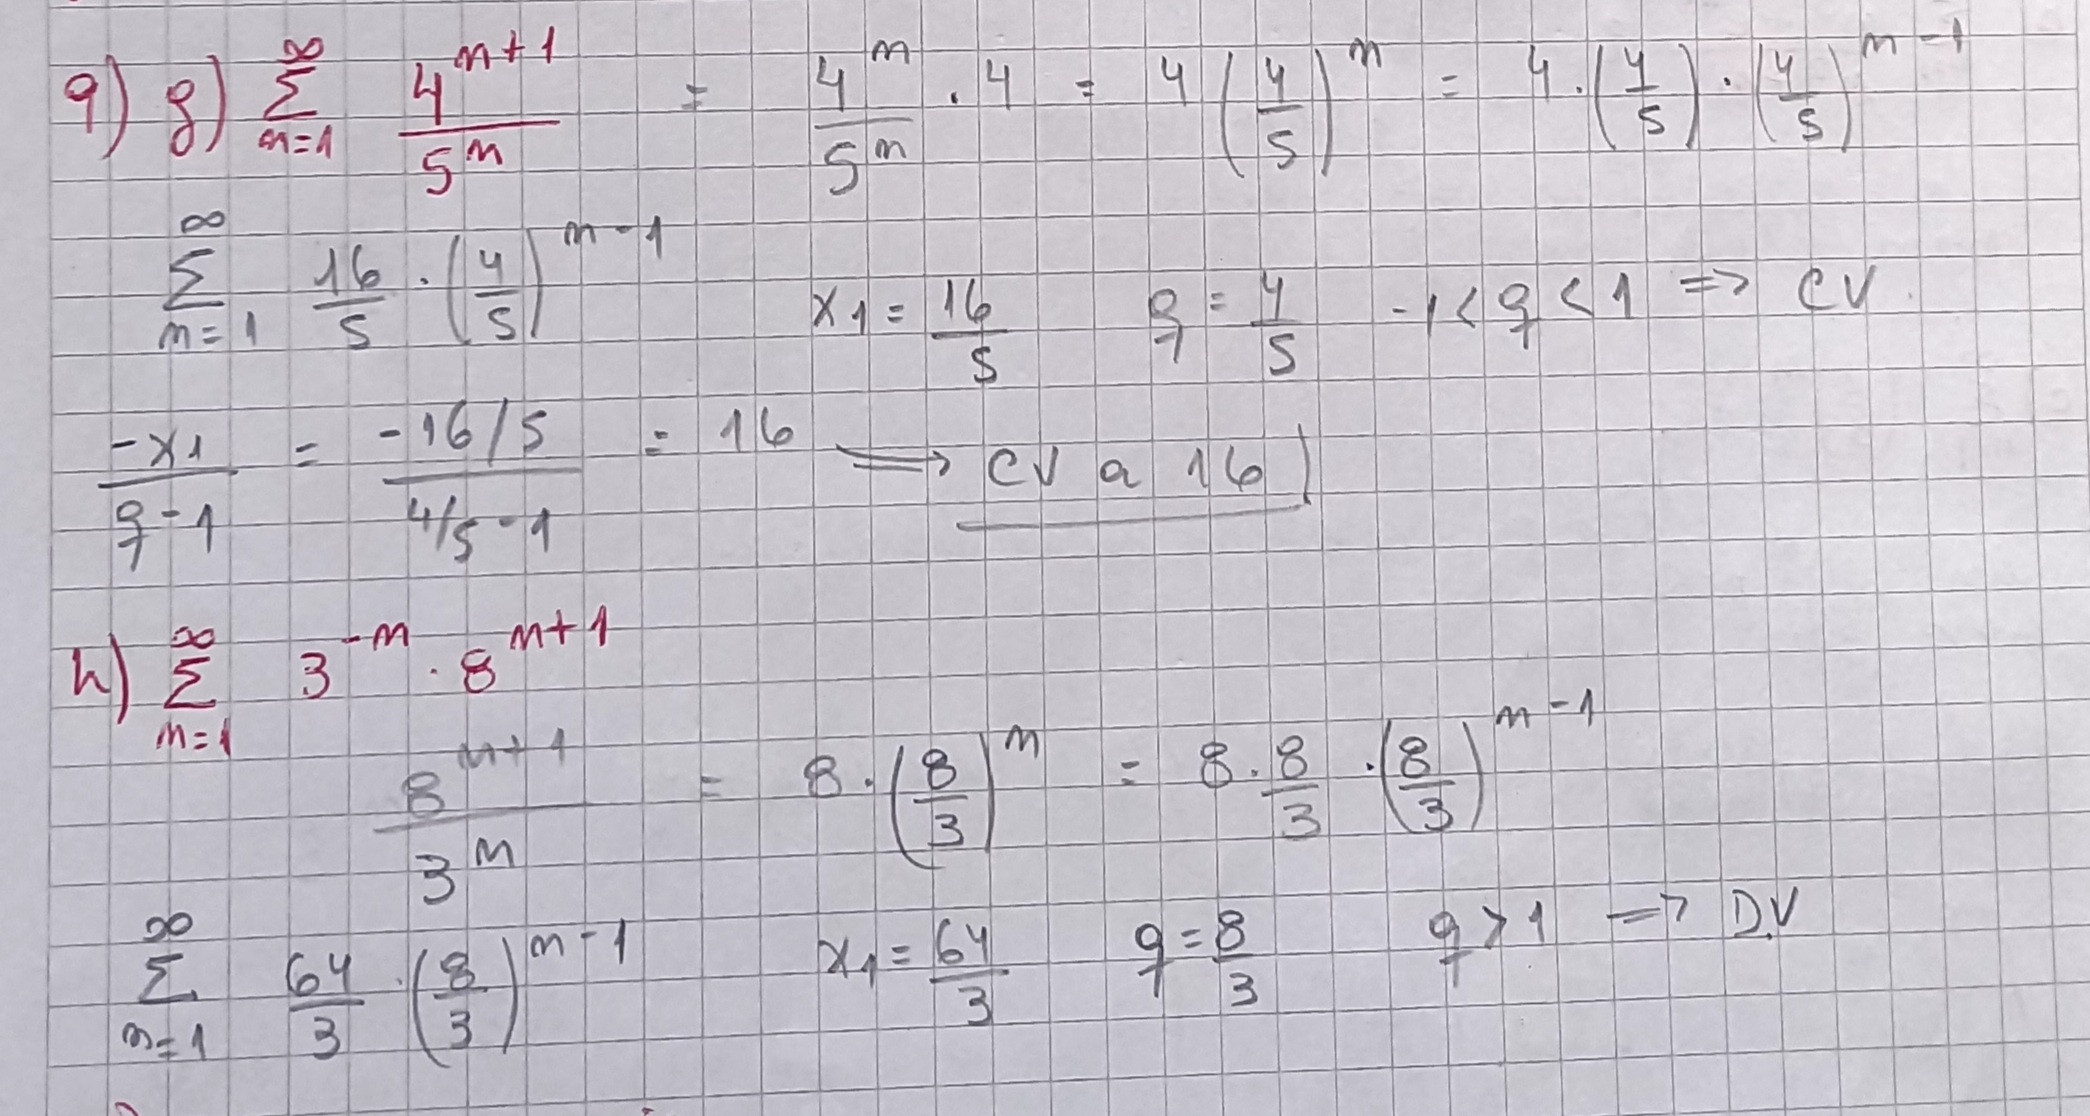 9) g) ∞ Σ n=1 4^(n+1) / 5^n = 4^n / 5^n · 4 = 4 (4/5)^n = 4 · (4/5) · (4/5)^(n-1)
∞ Σ n=1 16/5 · (4/5)^(n-1) x1 = 16/5 q = 4/5 -1 < q < 1 => CV
-x1 / q-1 = -16/5 / 4/5-1 = 16 => CV a 16
h) ∞ Σ n=1 3^(-n) · 8^(n+1)
8^(n+1) / 3^n = 8 · (8/3)^n = 8 · 8/3 · (8/3)^(n-1)
∞ Σ n=1 64/3 · (8/3)^(n-1) x1 = 64/3 q = 8/3 q > 1 => DV